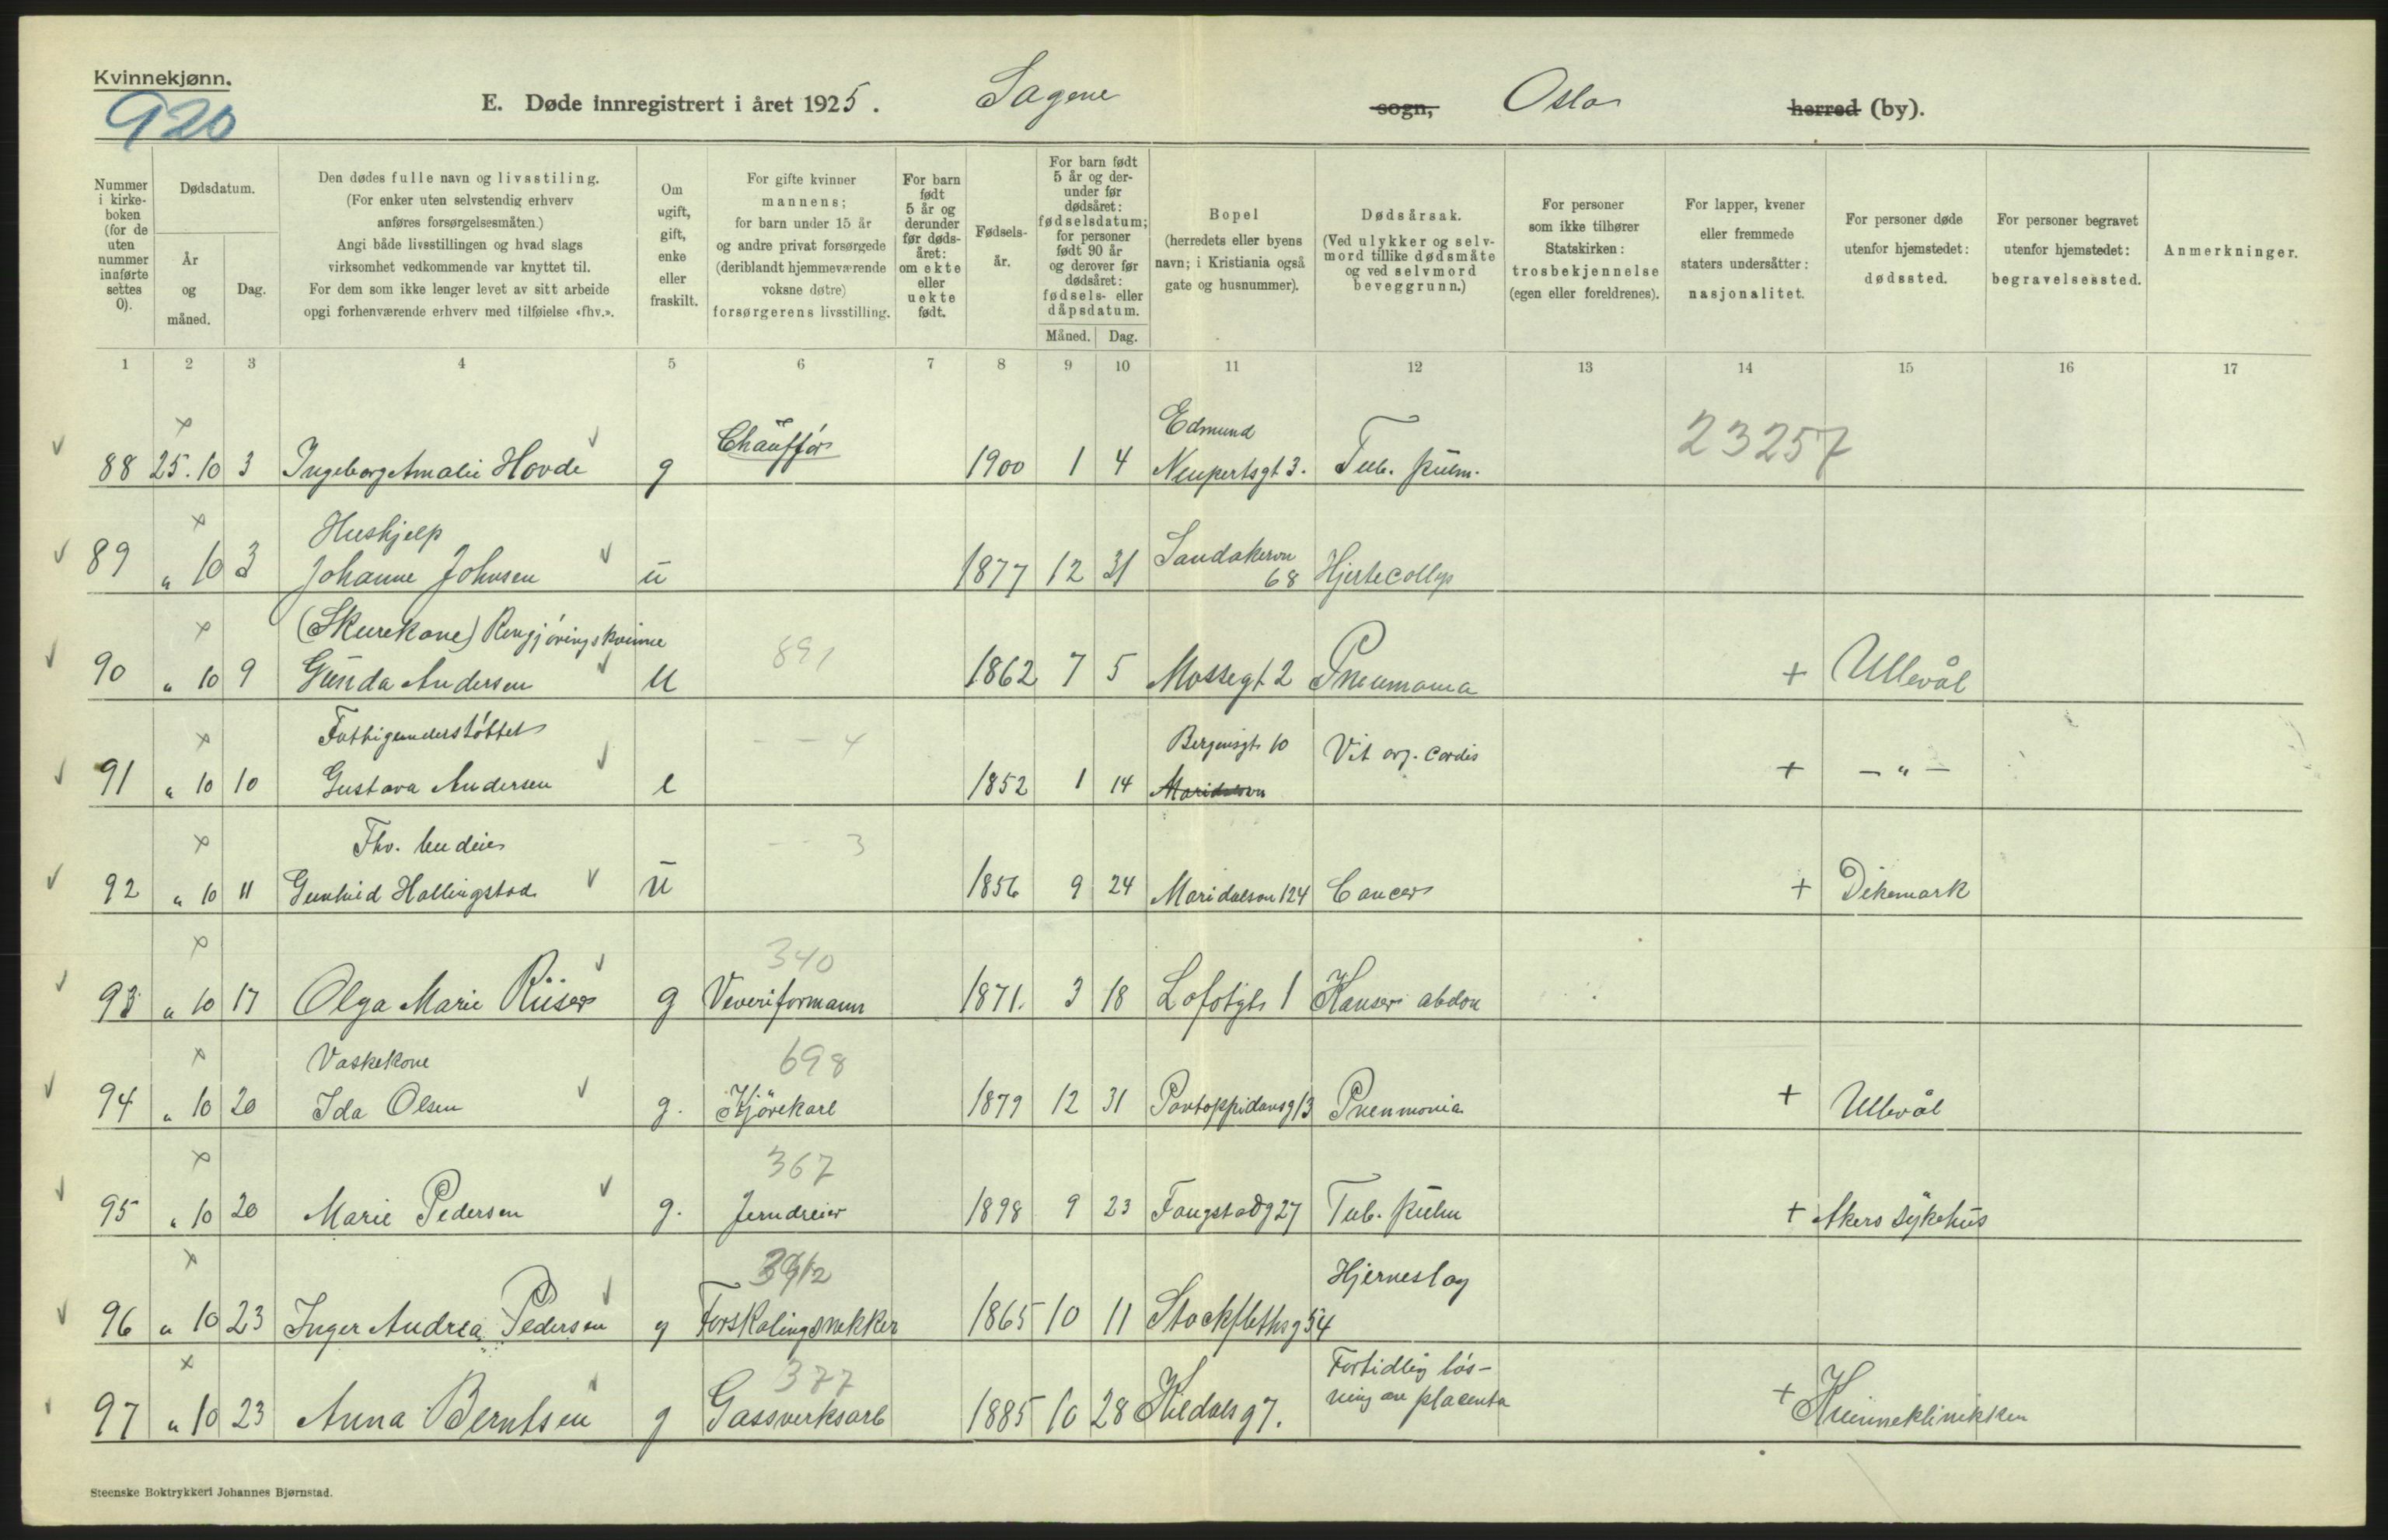 Kvinnekjønn.
920
E. Døde innregistrert i året 1925. Sagene sogn, Oslo herred (by).
Nummer i kirke-boken (for de uten nummer innførte settes 0).
Dødsdatum.
År og måned.
Dag.
Den dødes fulle navn og livsstiling.
(For enker uten selvstendig erhverv
anføres forsørgelsesmåten.)
Angi både livsstillingen og hvad slags
virksomhet vedkommende var knyttet til.
For dem som ikke lenger levet av sitt arbeide
opgi forhenværende erhverv med tilføielse «fhv.».
Om ugift, gift, enke eller fraskilt.
For gifte kvinner
mannens;
for barn under 15 år
og andre privat forsørgede
(deriblandt hjemmeværende
voksne døtre)
forsørgerens livsstilling.
For barn født 5 år og derunder før døds-året: om ekte eller uekte født.
Fødsels-år.
For barn født
5 år og der-
under før
dødsåret:
fødselsdatum;
for personer
født 90 år
og derover før
dødsåret:
fødsels- eller
dåpsdatum.
Måned. Dag.
Bopel
(herredets eller byens
navn; i Kristiania også
gate og husnummer).
Dødsårsak.
(Ved ulykker og selv-
mord tillike dødsmåte
og ved selvmord
beveggrunn.)
For personer
som ikke tilhører
Statskirken:
trosbekjennelse
(egen eller foreldrenes).
For lapper, kvener
eller fremmede
staters undersåtter:
nasjonalitet.
For personer døde
utenfor hjemstedet:
dødssted.
For personer begravet
utenfor hjemstedet:
begravelsessted.
Anmerkninger.
1 2 3 4 5 6 7 8 9 10 11 12 13 14 15 16 17
Edmund
88 25.10 3 Ingeborg Amalie Hovde g Chauffør 1900 1 4 Neupertsgt 3. Tub. pulm. 23257
Hushjelp
89 " 10 3 Johanne Johnsen u 1877 12 31 Sandakervn 68 Hjertecollaps
(Skurekone) Rengjøringskvinne
891
90 " 10 9 Gunda Andersen u 1862 7 5 Mossegt 2 Pneumonia + Ullevål
Fattigunderstøttet
— — 4
Bergensgt 10
91 " 10 10 Gustava Andersen e 1852 1 14 Maridalsvn Vit org. cordis + — " —
Fhv. budeie
— — 3
92 " 10 11 Gunhild Hallingstad u 1856 9 24 Maridalsvn 124 Cancer + Dikemark
340
93 " 10 17 Olga Marie Riiser g Veveriformann 1871. 3 18 Lofotgt 1 Kanser abdom
Vaskekone
698
94 " 10 20 Ida Olsen g. Kjørekarl 1879 12 31 Pontoppidansg 13 Pneumonia + Ullevål
367
95 " 10 20 Marie Pedersen g. Jerndreier 1898 9 23 Fougstadg 27 Tub. pulm + Akers sykehus
Hjerneslag
96 " 10 23 Inger Andrea Pedersen g Forskalingsnekker 1865 10 11 Stockflethsg 54
377
97 " 10 23 Anna Berntsen g Gassverksarb 1885 10 28 Kieldsg 7. Fortidlig løs-
ning av placenta + Kvinneklinikken
Steenske Boktrykkeri Johannes Bjørnstad.